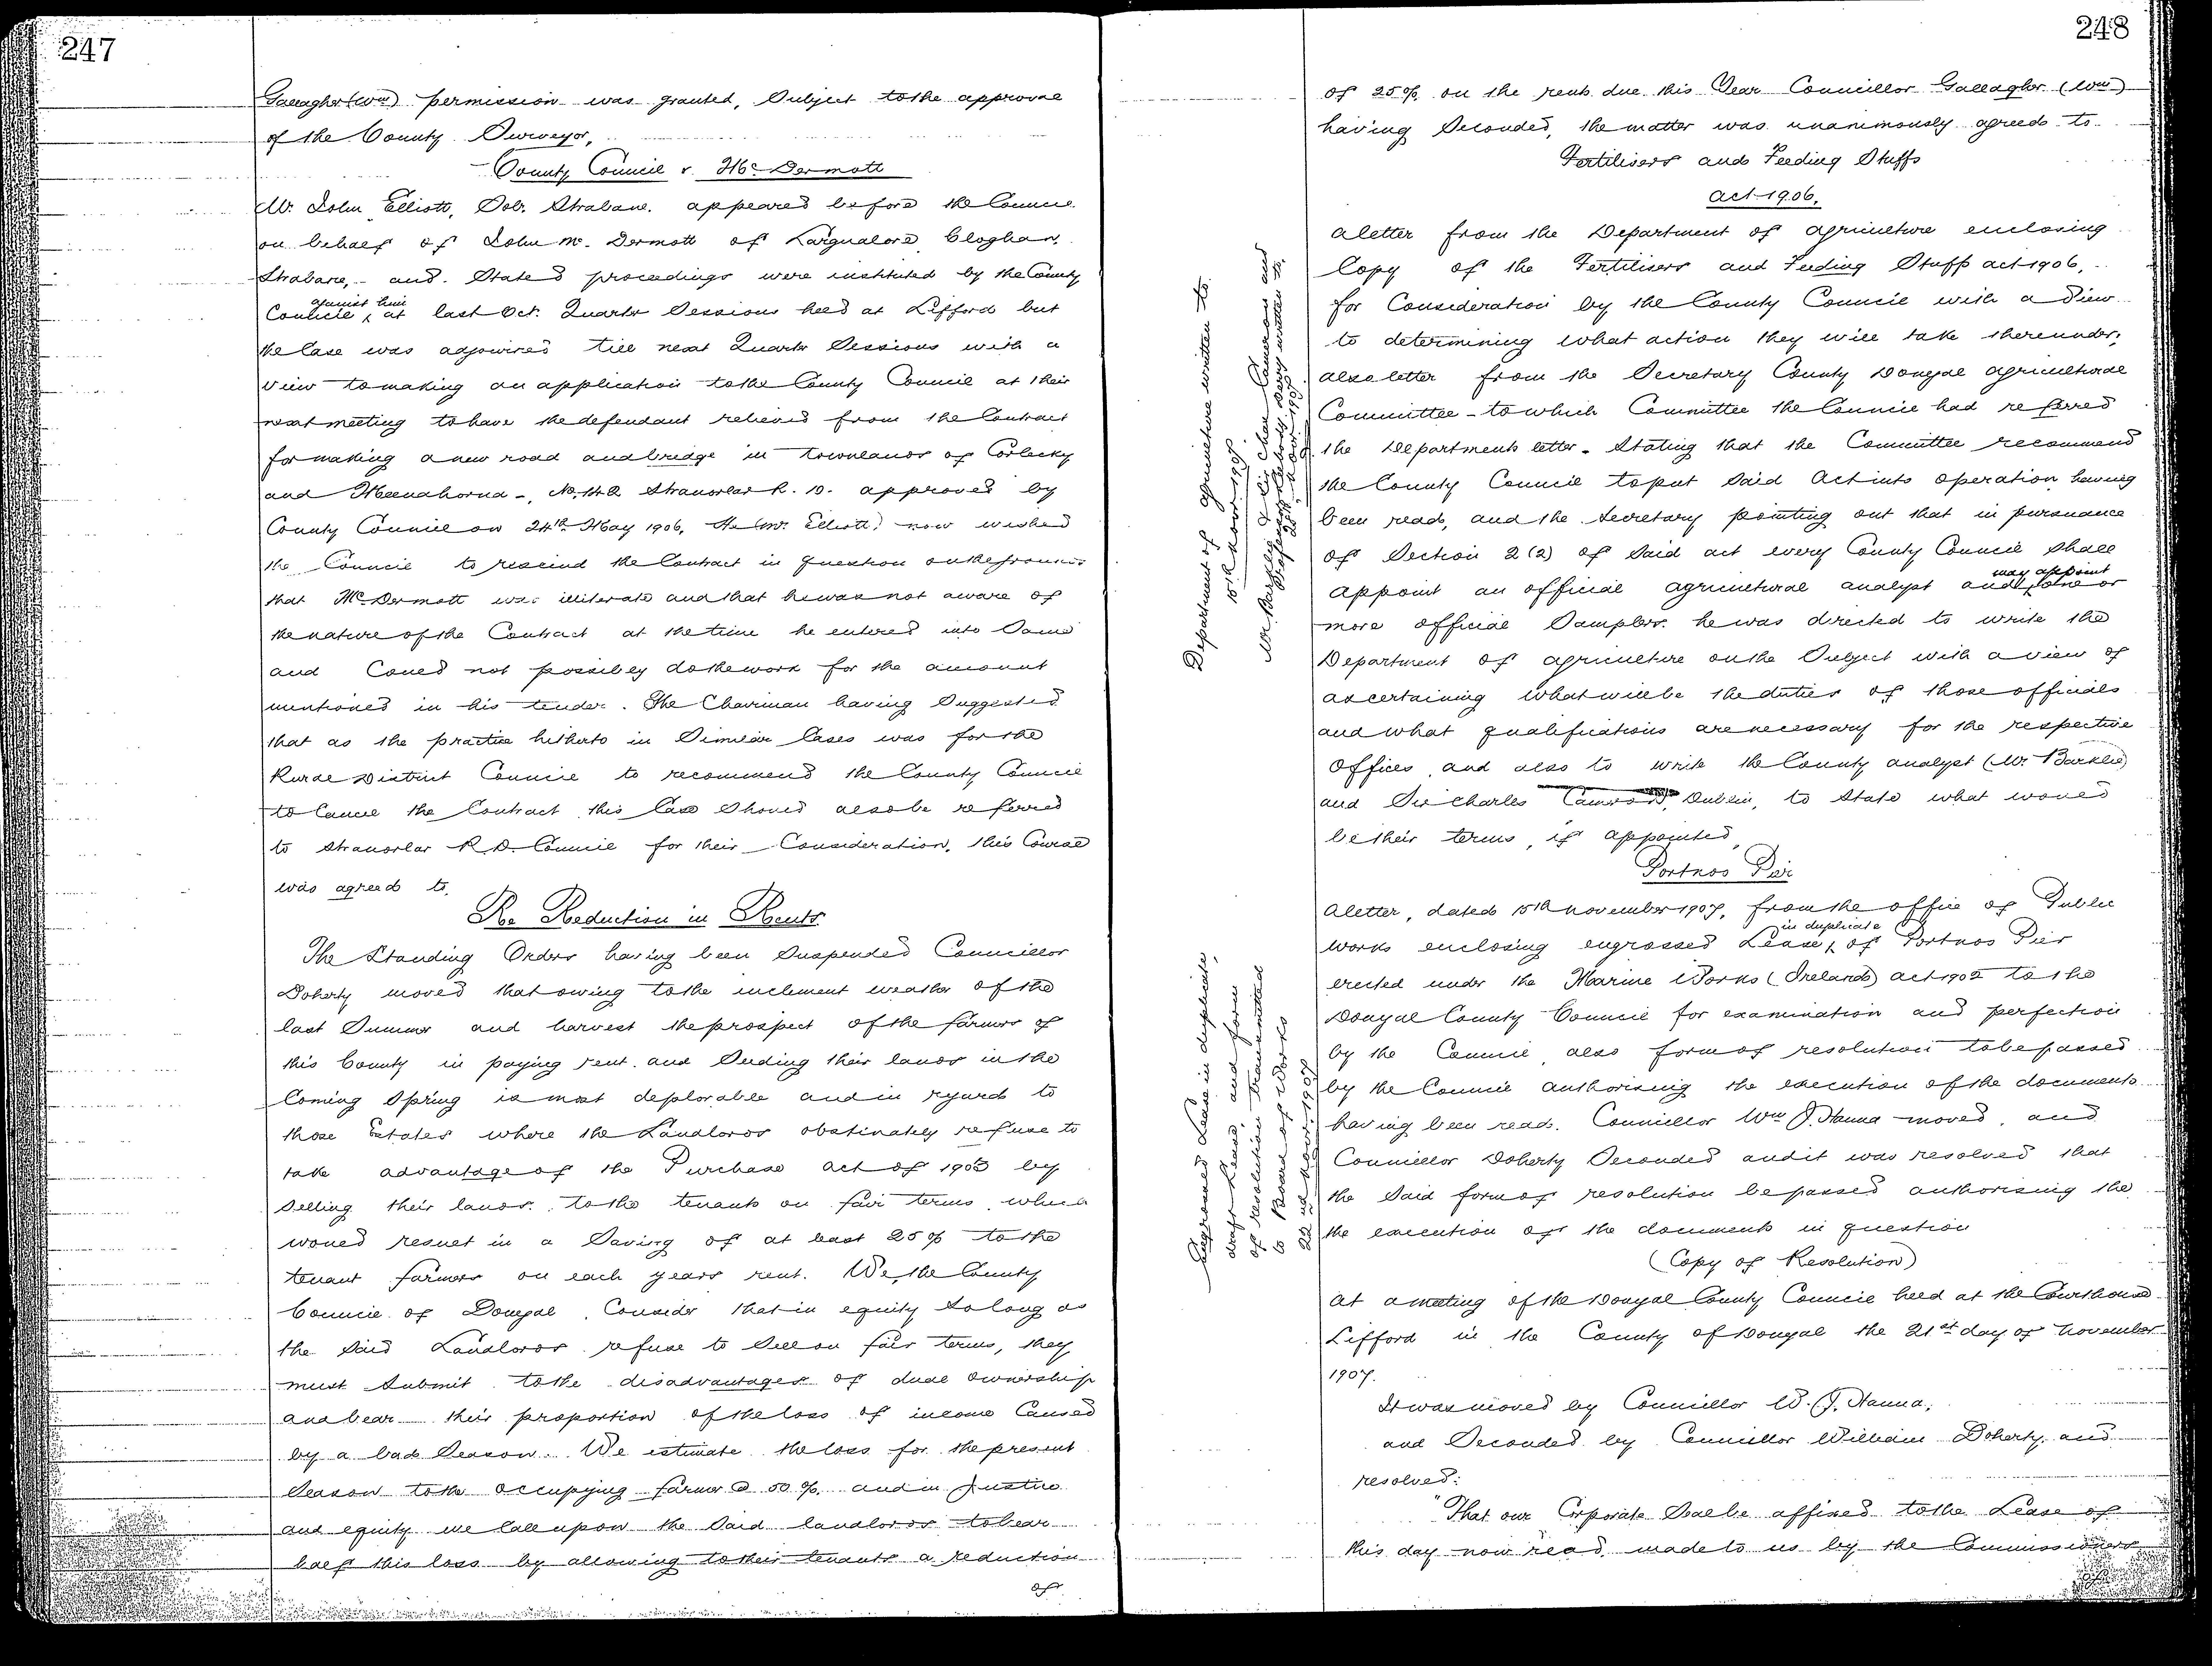 247
Gallagher (Wm) permission was granted, Subject to the approval
of the County Surveyor,
County Council v. McDermott
Mr. John Elliott, Solr. Strabane. appeared before the Council
on behalf of John McDermott of Cloghan,
Strabane, and Stated proceedings were instituted by the County
Council, against him at last Oct. Quarter Sessions held at Lifford but
the Case was adjourned till next Quarter Sessions with a
view to making an application to the County Council at their
next meeting to have the defendant relieved from the Contract
for making a new road and bridge in townlands of Corlecky
and Meenahorna -, No. 142 Stranorlar R. D. approved by
County Council on 24th May 1906, He (Mr. Elliott) now wished
the Council to rescind the Contract in question on the grounds
that McDermott was illiterate and that he was not aware of
the nature of the Contract at the time he entered into Same
and Could not possibly do the work for the amount
mentioned in his tender. The Chairman having Suggested
that as the practice hitherto in Similar Cases was for the
Rural District Council to recommend the County Council
to Cancel the Contract this Case Should also be referred
to Stranorlar R.D. Council for their Consideration, this Course
was agreed to.
Re Reduction in Rents
The Standing Orders having been Suspended Councillor
Doherty moved that owing to the inclement weather of the
last Summer and harvest the prospect of the farmers of
this County in paying rent and Seeding their lands in the
Coming Spring is most deplorable and in regard to
those Estates where the Landlords obstinately refuse to
take advantage of the Purchase act of 1903 by
Selling their lands to the tenants on fair terms which
would result in a Saving of at least 25% to the
tenant farmers on each years rent. We, the County
Council of Donegal, Consider that in equity So long as
the Said Landlords refuse to Sell on fair terms, they
must Submit to the disadvantages of dual ownership
and bear their proportion of the loss of income Caused
by a bad Season. We estimate the loss for the present
Season to the occupying farmer @ 50% and in Justice
and equity we Call upon the Said landlords to bear
half this loss by allowing to their tenants a reduction
of
248
of 25% on the rents due this Year Councillor Gallagher (Wm)
having Seconded, the matter was unanimously agreed to
Fertilisers and Feeding Stuffs
Act 1906.
A letter from the Department of Agriculture enclosing
Copy of the Fertilisers and Feeding Stuffs act 1906,
for Consideration by the County Council with a View
to determining what action they will take thereunder;
also letter from the Secretary County Donegal Agricultural
Committee - to which Committee the Council had referred
the Departments letter - Stating that the Committee recommend
the County Council to put Said Act into operation having
been read, and the Secretary pointing out that in pursuance
of Section 2 (2) of Said act every County Council Shall
appoint an official agricultural analyst and may appoint one or
more official Samplers. he was directed to write the
Department of Agriculture on the Subject with a view of
ascertaining what will be the duties of those officials
and what qualifications are necessary for the respective
Offices, and also to write the County analyst (Mr. Barklie)
and Sir Charles Cameron, Dublin, to State what would
be their terms, if appointed,
Department of Agriculture written to
15th Novr 1907.
Mr. Barklie & Sir Chas. Cameron and
Portnoo Pier
A letter, dated 15th November 1907, from the office of Public
Works enclosing engrossed Lease, in duplicate of Portnoo Pier
erected under the Marine Works (Ireland) act 1902 to the
Donegal County Council for examination and perfection
by the Council, also form of resolution to be passed
by the Council authorising the execution of the documents
having been read. Councillor Wm J. Hanna moved, and
Councillor Doherty Seconded and it was resolved that
the Said form of resolution be passed authorising the
the execution of the documents in question
Engrossed Lease in duplicate,
draft Lease, and form
of resolution transmitted
to Board of Works
22nd Novr. 1907
(Copy of Resolution)
At a meeting of the Donegal County Council held at the Courthouse
Lifford in the County of Donegal the 21st day of November
1907.
It was moved by Councillor W. J. Hanna,
and Seconded by Councillor William Doherty, and
resolved:
"That our Corporate Seal be affixed to the Lease of
this day now read made to us by the Commissioners
of